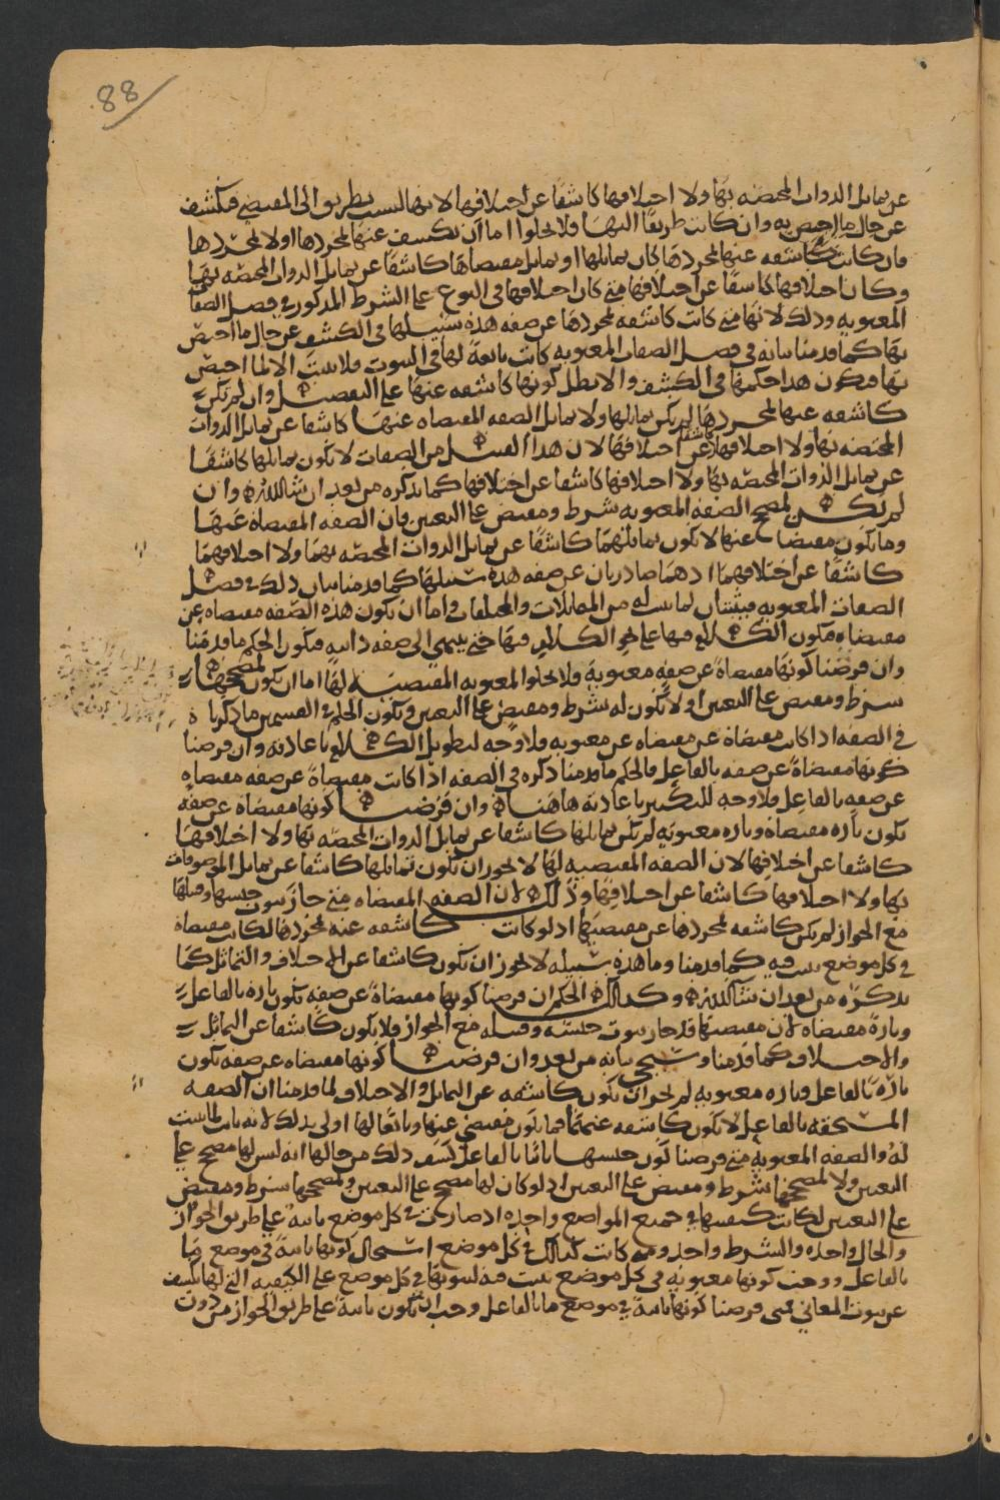 88
عن تماثل الذوات المختصه بها ولا اختلافها كاشفا عن اختلافها لانها ليست بطريق الى المقتضي فتكشف
عن حال ما اختص به وان كانت طريقا اليها فلا يخلوا اما ان تكشف عنها لمجردها او لا لمجردها
فان كانت كاشفه عنها لمجردها كان تماثلها او تماثل مقتضاها كاشفا عن تماثل الذوات المختصه بها
وكان اختلافها كاشفا عن اختلافها متى كان اختلافها في النوع على الشرط المذكور في فصل الصفات
المعنويه وذلك لانها متى كانت كاشفه لمجردها عن صفه هذه سبيلها في الكشف عن حال ما اختص
بها كما قدمنا بيانه في فصل الصفات المعنويه كانت تابعة لها في الثبوت ولا تثبت الا لما اختص
بها فيكون هذا حكمها في الكشف والا بطل كونها كاشفه عنها على التفصيل وان لم تكن
كاشفه عنها لمجردها لم يكن تماثلها ولا تماثل الصفه المقتضاه عنها كاشفا عن تماثل الذوات
المختصه بها ولا اختلافها كاشفا عن اختلافها لان هذا القبيل من الصفات لا يكون تماثلها كاشفا
عن تماثل الذوات المختصه بها ولا اختلافها كاشفا عن اختلافها كما نذكره من بعد ان شا الله وان
لم يكن لمصحح الصفه المعنويه شرط ومقتض على التعين فان الصفه المقتضاه عنها
وما يكون مقتضا عنها لا يكون تماثلهما كاشفا عن تماثل الذوات المختصه بهما ولا اختلافهما
كاشفا عن اختلافهما اذ هما صادرتان عن صفه هذه سبيلها كما قدمنا بيان ذلك في فصل
الصفات المعنويه من المتماثلات والمختلفات فاما ان تكون هذه الصفه مقتضاه عن
مقتضاه فيكون الكلام فيها على نحو الكلام فيها حتى ينتهي الى صفه ذاتيه فيكون الحكم ما قدمنا
وان فرضنا كونها مقتضاة عن صفه معنويه فلا يخلوا المعنويه المقتضيه لها اما ان يكون لمصححها
شرط ومقتض على التعين او لا يكون له شرط ومقتض على التعين ويكون الحكم في القسمين ما ذكرناه
في الصفه اذا كانت مقتضاة عن مقتضاه عن معنويه فلا وجه لتطويل الكلام باعادته وان فرضنا
كونها مقتضاة عن صفه بالفاعل فالحكم ما قدمنا ذكره في الصفه اذا كانت مقتضاة عن صفه مقتضاه
عن صفه بالفاعل فلا وجه للتكثير باعادته هاهنا وان فرضنا كونها مقتضاة عن صفه
تكون تاره مقتضاة وتاره معنويه لم يكن تماثلها كاشفا عن تماثل الذوات المختصه بها ولا اختلافها
كاشفا عن اختلافها لان الصفه المقتضيه لها لا يجوز ان يكون تماثلها كاشفا عن تماثل الموصوفات
بها ولا اختلافها كاشفا عن اختلافها وذلك لان الصفه المقتضاه متى جاز ثبوت جنسها وقبيلها
مع الجواز لم يكن كاشفه لمجردها عن مقتضيها اذ لو كانت كاشفه عنه لمجردها لكانت مقتضاه
في كل موضع تثبت فيه كما قدمنا وما هذه سبيله لا يجوز ان يكون كاشفا عن الاختلاف والتماثل كما
نذكره من بعد ان شا الله وكذلك الحكم ان فرضنا كونها مقتضاة عن صفه تكون تاره بالفاعل
وتارة مقتضاه لان مقتضيها قد جاز ثبوت جنسه وقبيله مع الجواز فلا يكون كاشفا عن التماثل
والاختلاف كما قدمنا وسيجي بيانه من بعد وان فرضنا كونها مقتضاه عن صفه تكون
تارة بالفاعل وتاره معنويه لم يجز ان تكون كاشفه عن التماثل والاختلاف لما قدمنا ان الصفه
المستحقه بالفاعل لا تكون كاشفه عنهما فما يكون مقتضى عنها وتابعا لها اولى بذلك لانه تابت لما يثبت
له والصفه المعنويه متى فرضنا كون جنسها ثابتا بالفاعل كشف ذلك من حالها انه ليس لها مصحح على
التعين ولا لمصححها شرط ومقتض على التعين اذ لو كان لها مصحح على التعين ولمصححها شرط ومقتض
على التعين لكانت كيفيتها في جميع المواضع واحده اذ صارت في كل موضع ثابته على طريق الجواز
والحال واحده والشرط واحد ومتى كانت كذلك في كل موضع استحال كونها ثابتة في موضع ما
بالفاعل ووجب كونها معنويه في كل موضع تثبت فيه لثبوتها في كل موضع على الكيفيه التي لها تكشف
عن ثبوت المعاني فمتى فرضنا كونها ثابتة في موضع ما بالفاعل وجب ان تكون ثابتة على طريق الجواز من دون